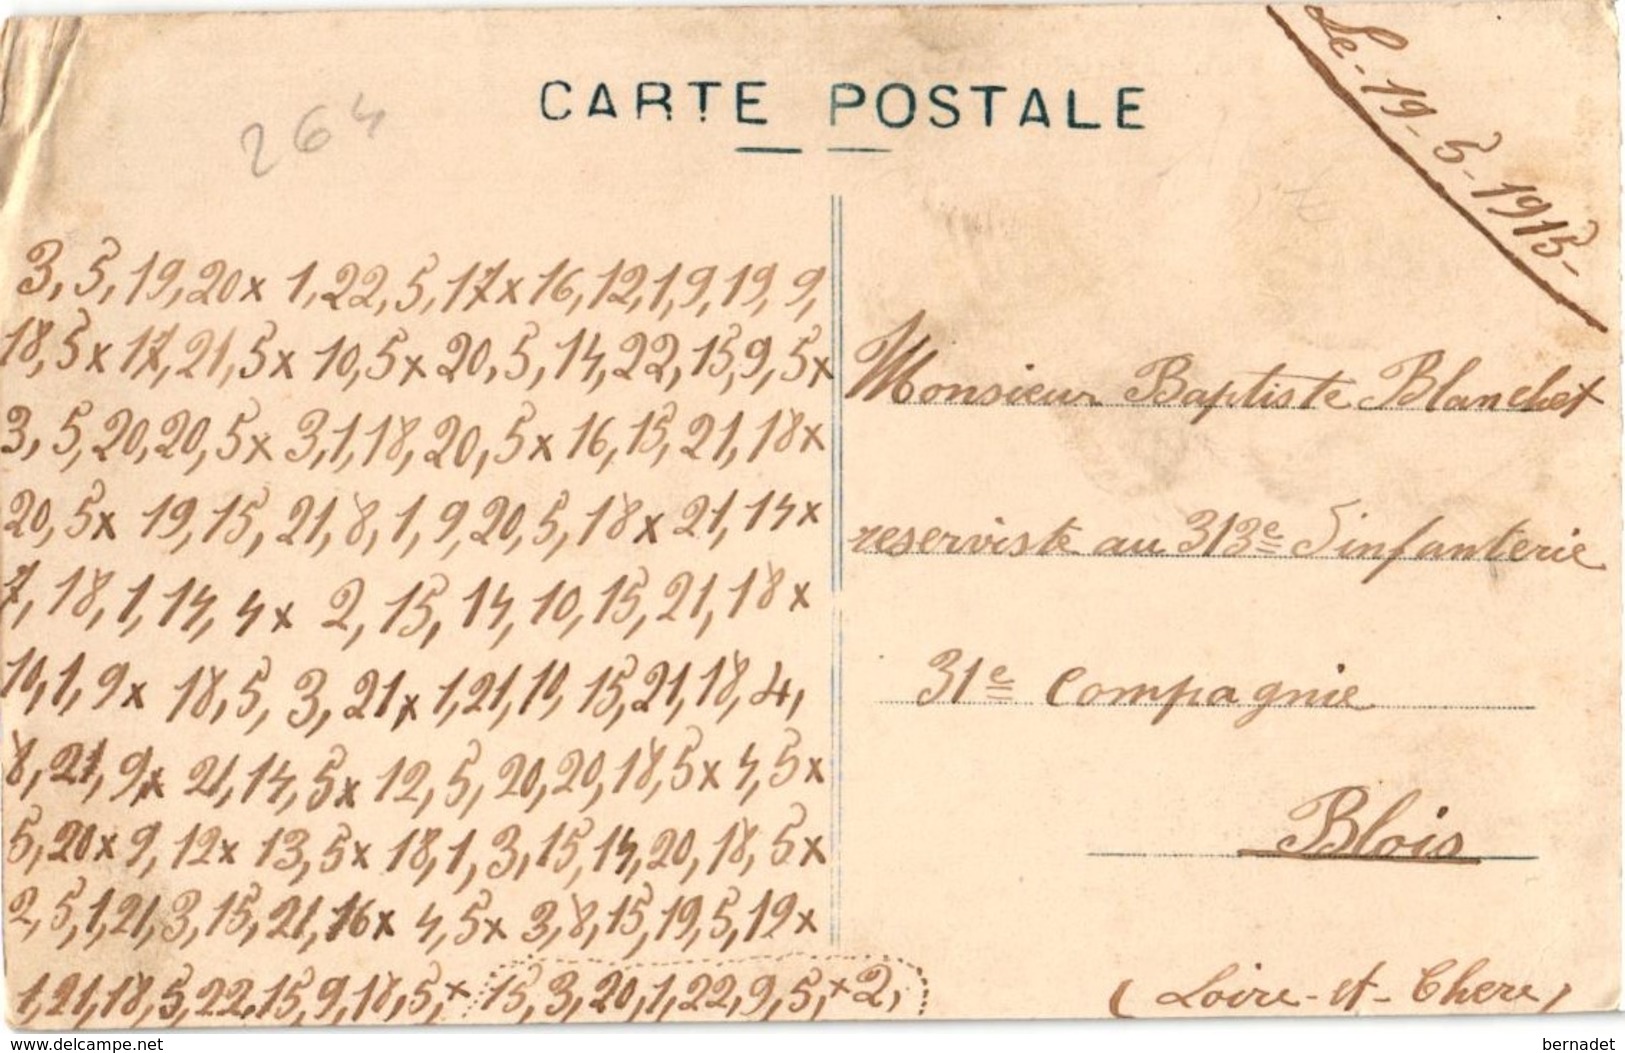 CARTE POSTALE
264
Le - 19 - 5 - 1915 -
3, 5, 19, 20 x 1, 22, 5, 17 x 16, 12, 1, 9, 19, 9,
18, 5 x 17, 21, 5 x 10, 5 x 20, 5, 14, 22, 15, 9, 5 x
3, 5, 20, 20, 5 x 3, 1, 18, 20, 5 x 16, 15, 21, 18 x
20, 5 x 19, 15, 21, 8, 1, 9, 20, 5, 18 x 21, 14 x
7, 18, 1, 14, 4 x 2, 15, 14, 10, 15, 21, 18 x
10, 1, 9 x 18, 5, 3, 21 x 1, 21, 10, 15, 21, 18, 4,
8, 21, 9, x 21, 14, 5 x 12, 5, 20, 20, 18, 5 x 4, 5 x
5, 20 x 9, 12 x 13, 5 x 18, 1, 3, 15, 14, 20, 18, 5 x
2, 5, 1, 21, 3, 15, 21, 16 x 4, 5 x 3, 8, 15, 19, 5, 19 x
1, 21, 18, 5, 22, 15, 9, 18, 5, x 15, 3, 20, 1, 22, 9, 5, x 2,
Monsieur Baptiste Blanchet
reserviste au 313e d'infanterie
31e Compagnie
Blois
(Loire-et-Chere)
delcampe.net
bernadet